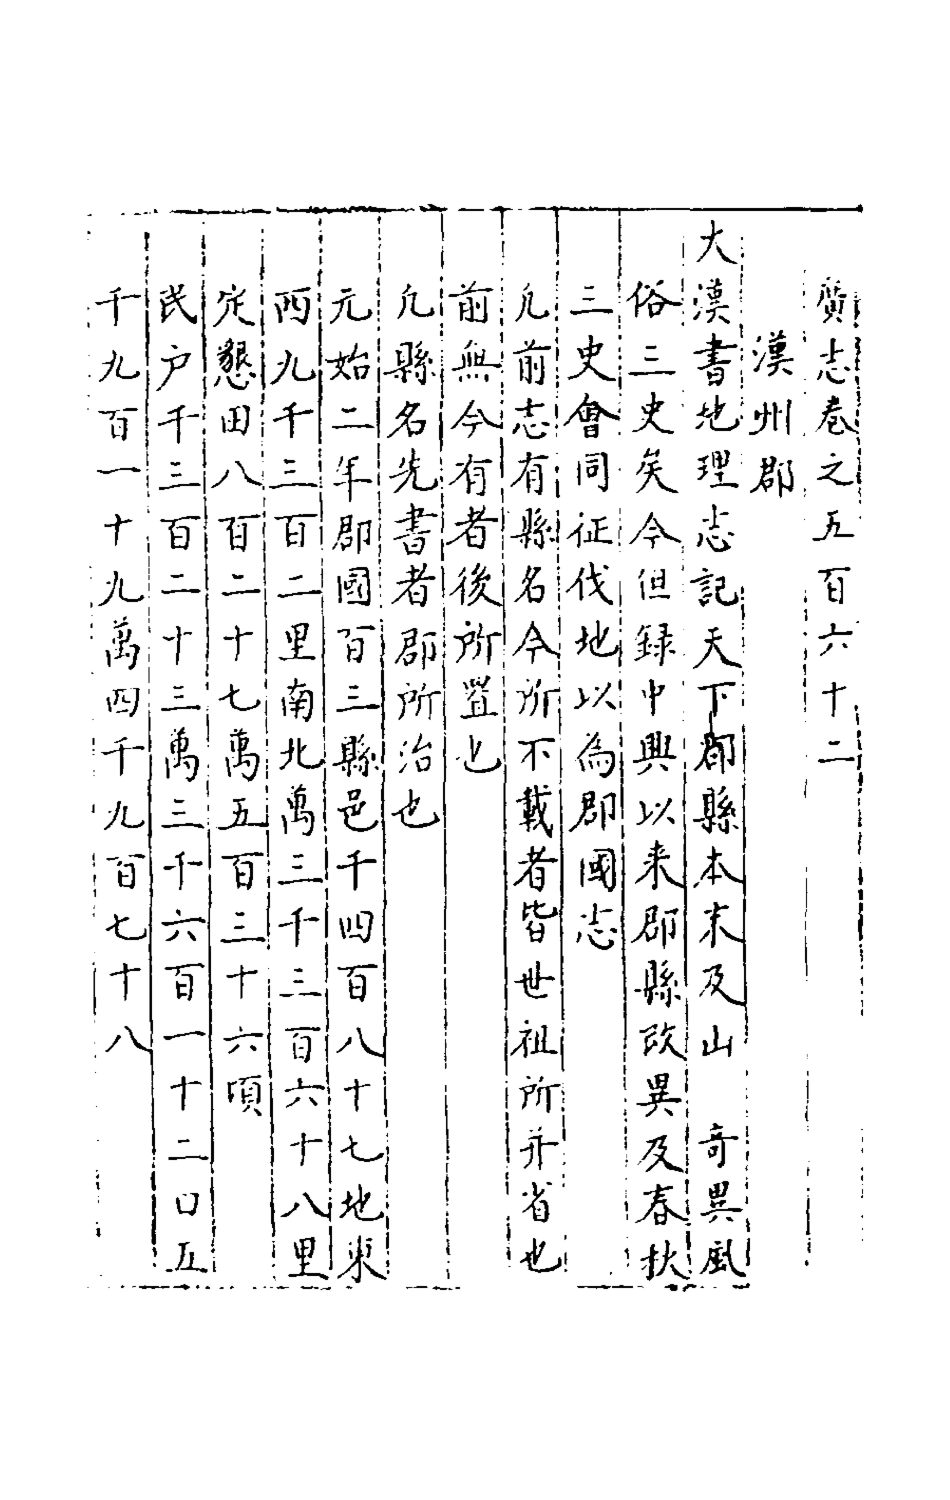 廣志卷之五百六十二
漢州郡
大漢書地理志記天下郡縣本末及山 奇異風
俗三史矣今但録中興以来郡縣改異及春秋
三史會同征伐地以為郡國志
凡前志有縣名今所不載者皆世祖所并省也
前無今有者後所置也
凡縣名先書者郡所治也
元始二年郡國百三縣邑千四百八十七地東
西九千三百二里南北萬三千三百六十八里
定懇田八百二十七萬五百三十六頃
民户千三百二十三萬三千六百一十二口五
千九百一十九萬四千九百七十八